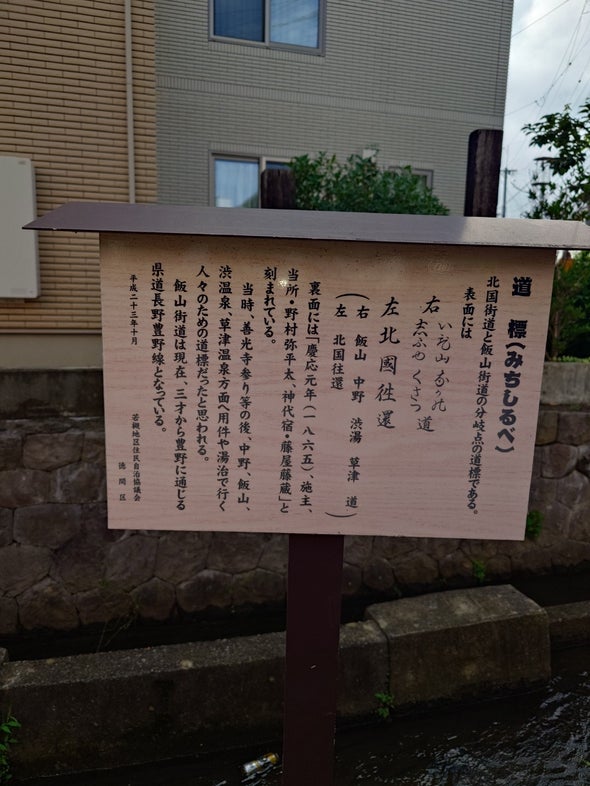 道 標(みちしるべ)
北国街道と飯山街道の分岐点の道標である。
表面には
右
道
左北國往還
(右 飯山 中野 渋湯 草津 道)
(左 北国往還)
裏面には「慶応元年(一八六五)、施主、
当所・野村弥平太、神代宿・藤屋藤蔵」と
刻まれている。
当時、善光寺参り等の後、中野、飯山、
渋温泉、草津温泉方面へ用件や湯治で行く
人々のための道標だったと思われる。
飯山街道は現在、三才から豊野に通じる
県道長野豊野線となっている。
平成二十三年十月
若槻地区住民自治協議会
徳間区